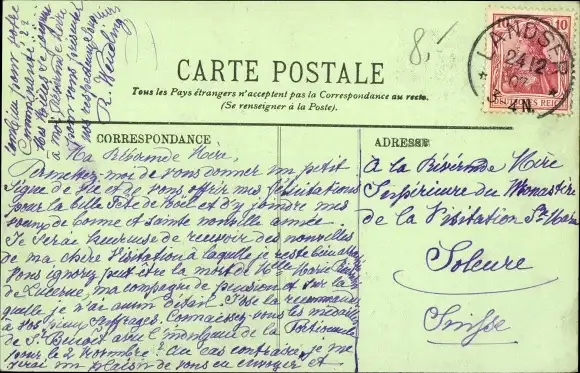 CARTE POSTALE
Tous les Pays étrangers n'acceptent pas la Correspondance au recto.
(Se renseigner à la Poste).
CORRESPONDANCE
Ma Révérende Mère,
Permettez-moi de vous donner un petit
signe de vie et de vous offrir mes félicitations
pour la belle Fête de Noël et d'y joindre mes
vœux de bonne et sainte nouvelle année.
Je serai heureuse de recevoir des nouvelles
de ma chère Visitation à laquelle je reste bien
Vous ignorez peut-être la mort de Melle Marie
de Lucerne, ma compagne de pension et sur la
quelle je n'ai aucun détail. J'ose la recommander
à vos pieux suffrages. Connaissez-vous les médailles
de St Benoit avec l'indulgence de la Portioncule
pour le 2 Novembre? Au cas contraire, je me
ferai un plaisir de vous en envoyer et
pour votre
Communauté?
à mon
pour vous présenter
mes respectueux
R.
ADRESSE
A la Révérende Mère
Supérieure du Monastère
de la Visitation Ste Marie
Soleure
Suisse
8,-
10
LANDSER
24 12
07
N.
DEUTSCHES REICH